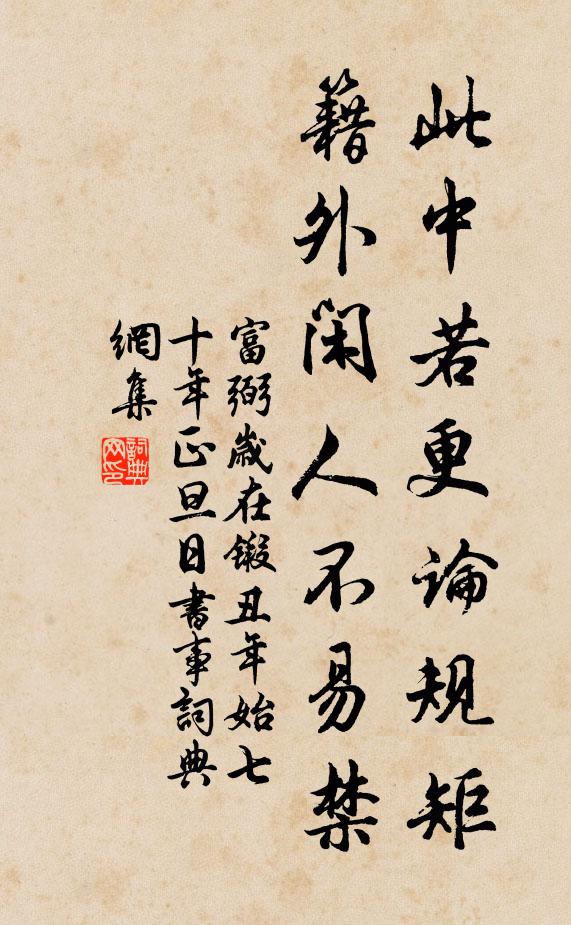 此中若更論規矩
籍外閑人不易禁
富弼歲在鍛丑年始七
十年正旦日書事詞典
網集
詞典网印